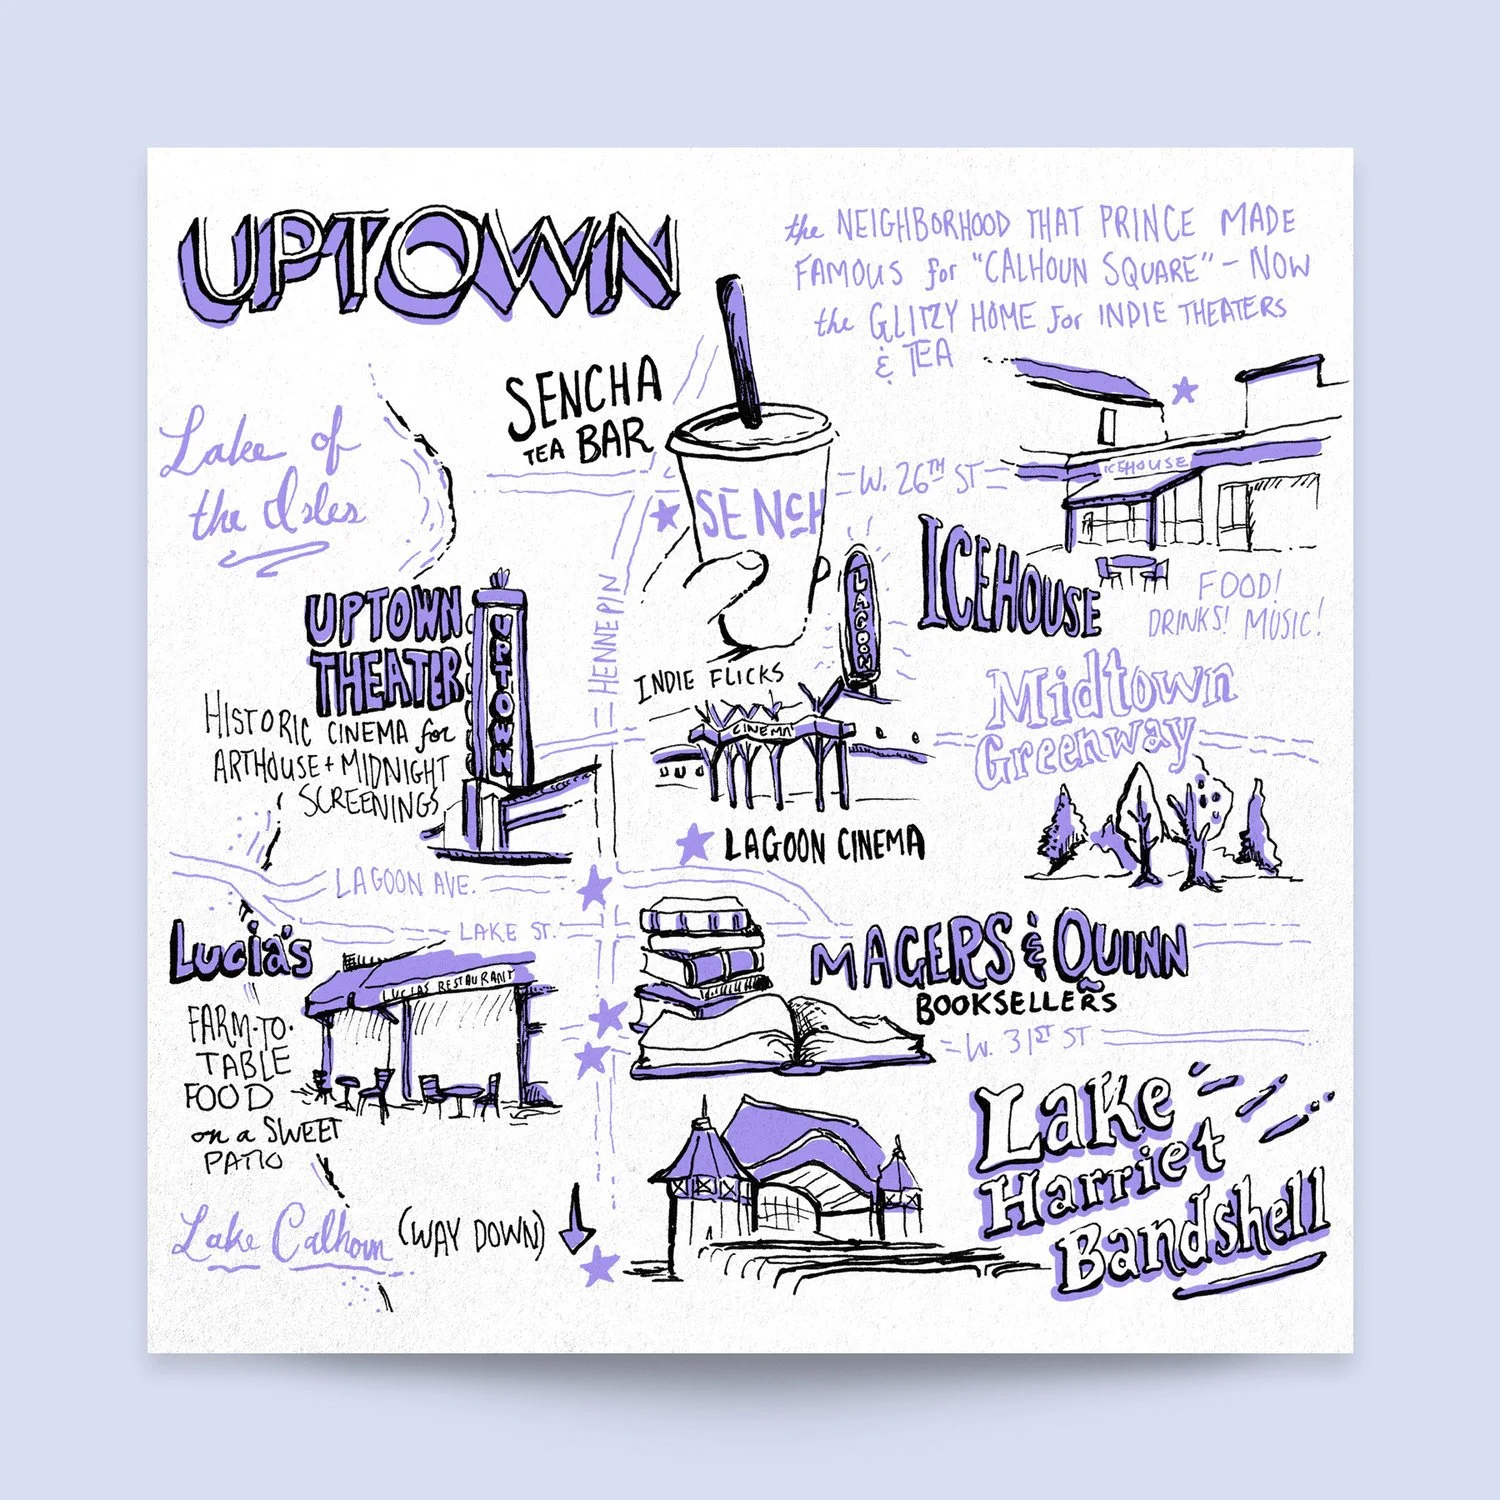 UPTOWN
the NEIGHBORHOOD THAT PRINCE MADE
FAMOUS for "CALHOUN SQUARE" - NOW
the GLITZY HOME for INDIE THEATERS
& TEA
SENCHA
TEA BAR
SENCH
Lake of
the Isles
W. 26TH ST
ICEHOUSE
ICEHOUSE
FOOD!
DRINKS! MUSIC!
HENNEPIN
UPTOWN
THEATER
UPTOWN
HISTORIC CINEMA for
ARTHOUSE + MIDNIGHT
SCREENINGS
INDIE FLICKS
LAGOON
CINEMA
LAGOON CINEMA
Midtown
Greenway
LAGOON AVE.
LAKE ST.
LUCIA'S
LUCIAS RESTAURANT
FARM-TO-
TABLE
FOOD
on a SWEET
PATIO
MAGERS & QUINN
BOOKSELLERS
W. 31ST ST
Lake Calhoun (WAY DOWN)
Lake
Harriet
Bandshell